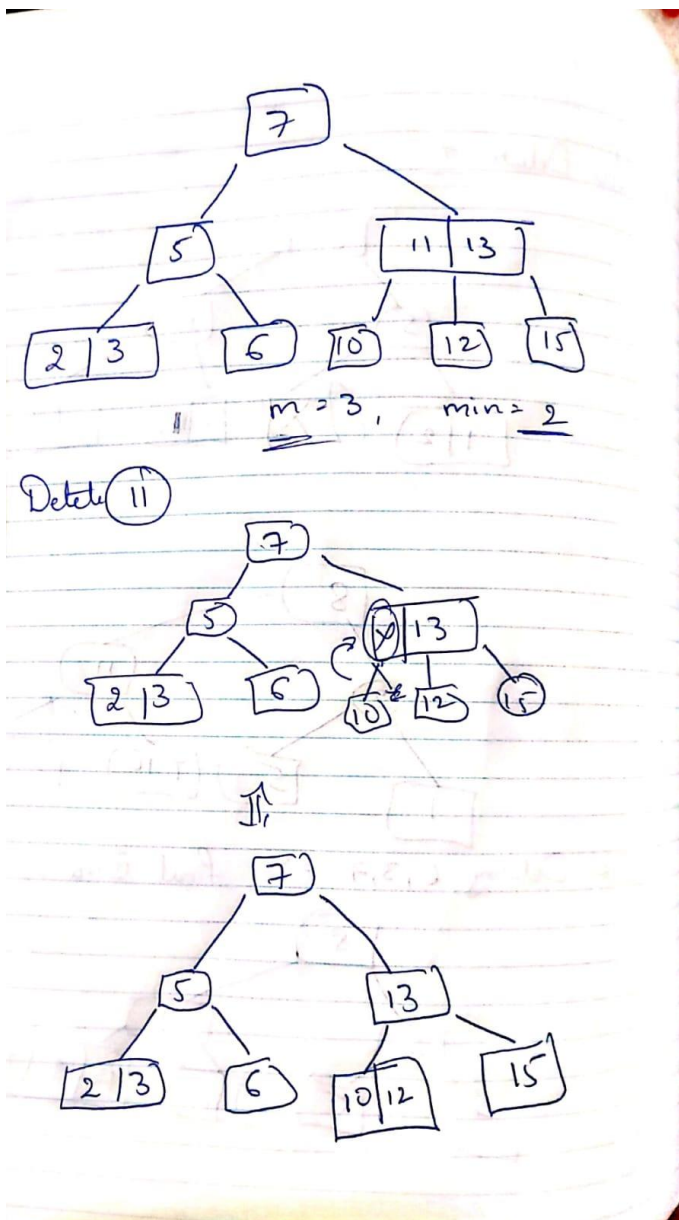 7
5 11 | 13
2 | 3 6 10 12 15
m = 3, min = 2
Delete 11
7
5 13
2 | 3 6 10 12 15
7
5 13
2 | 3 6 10 | 12 15